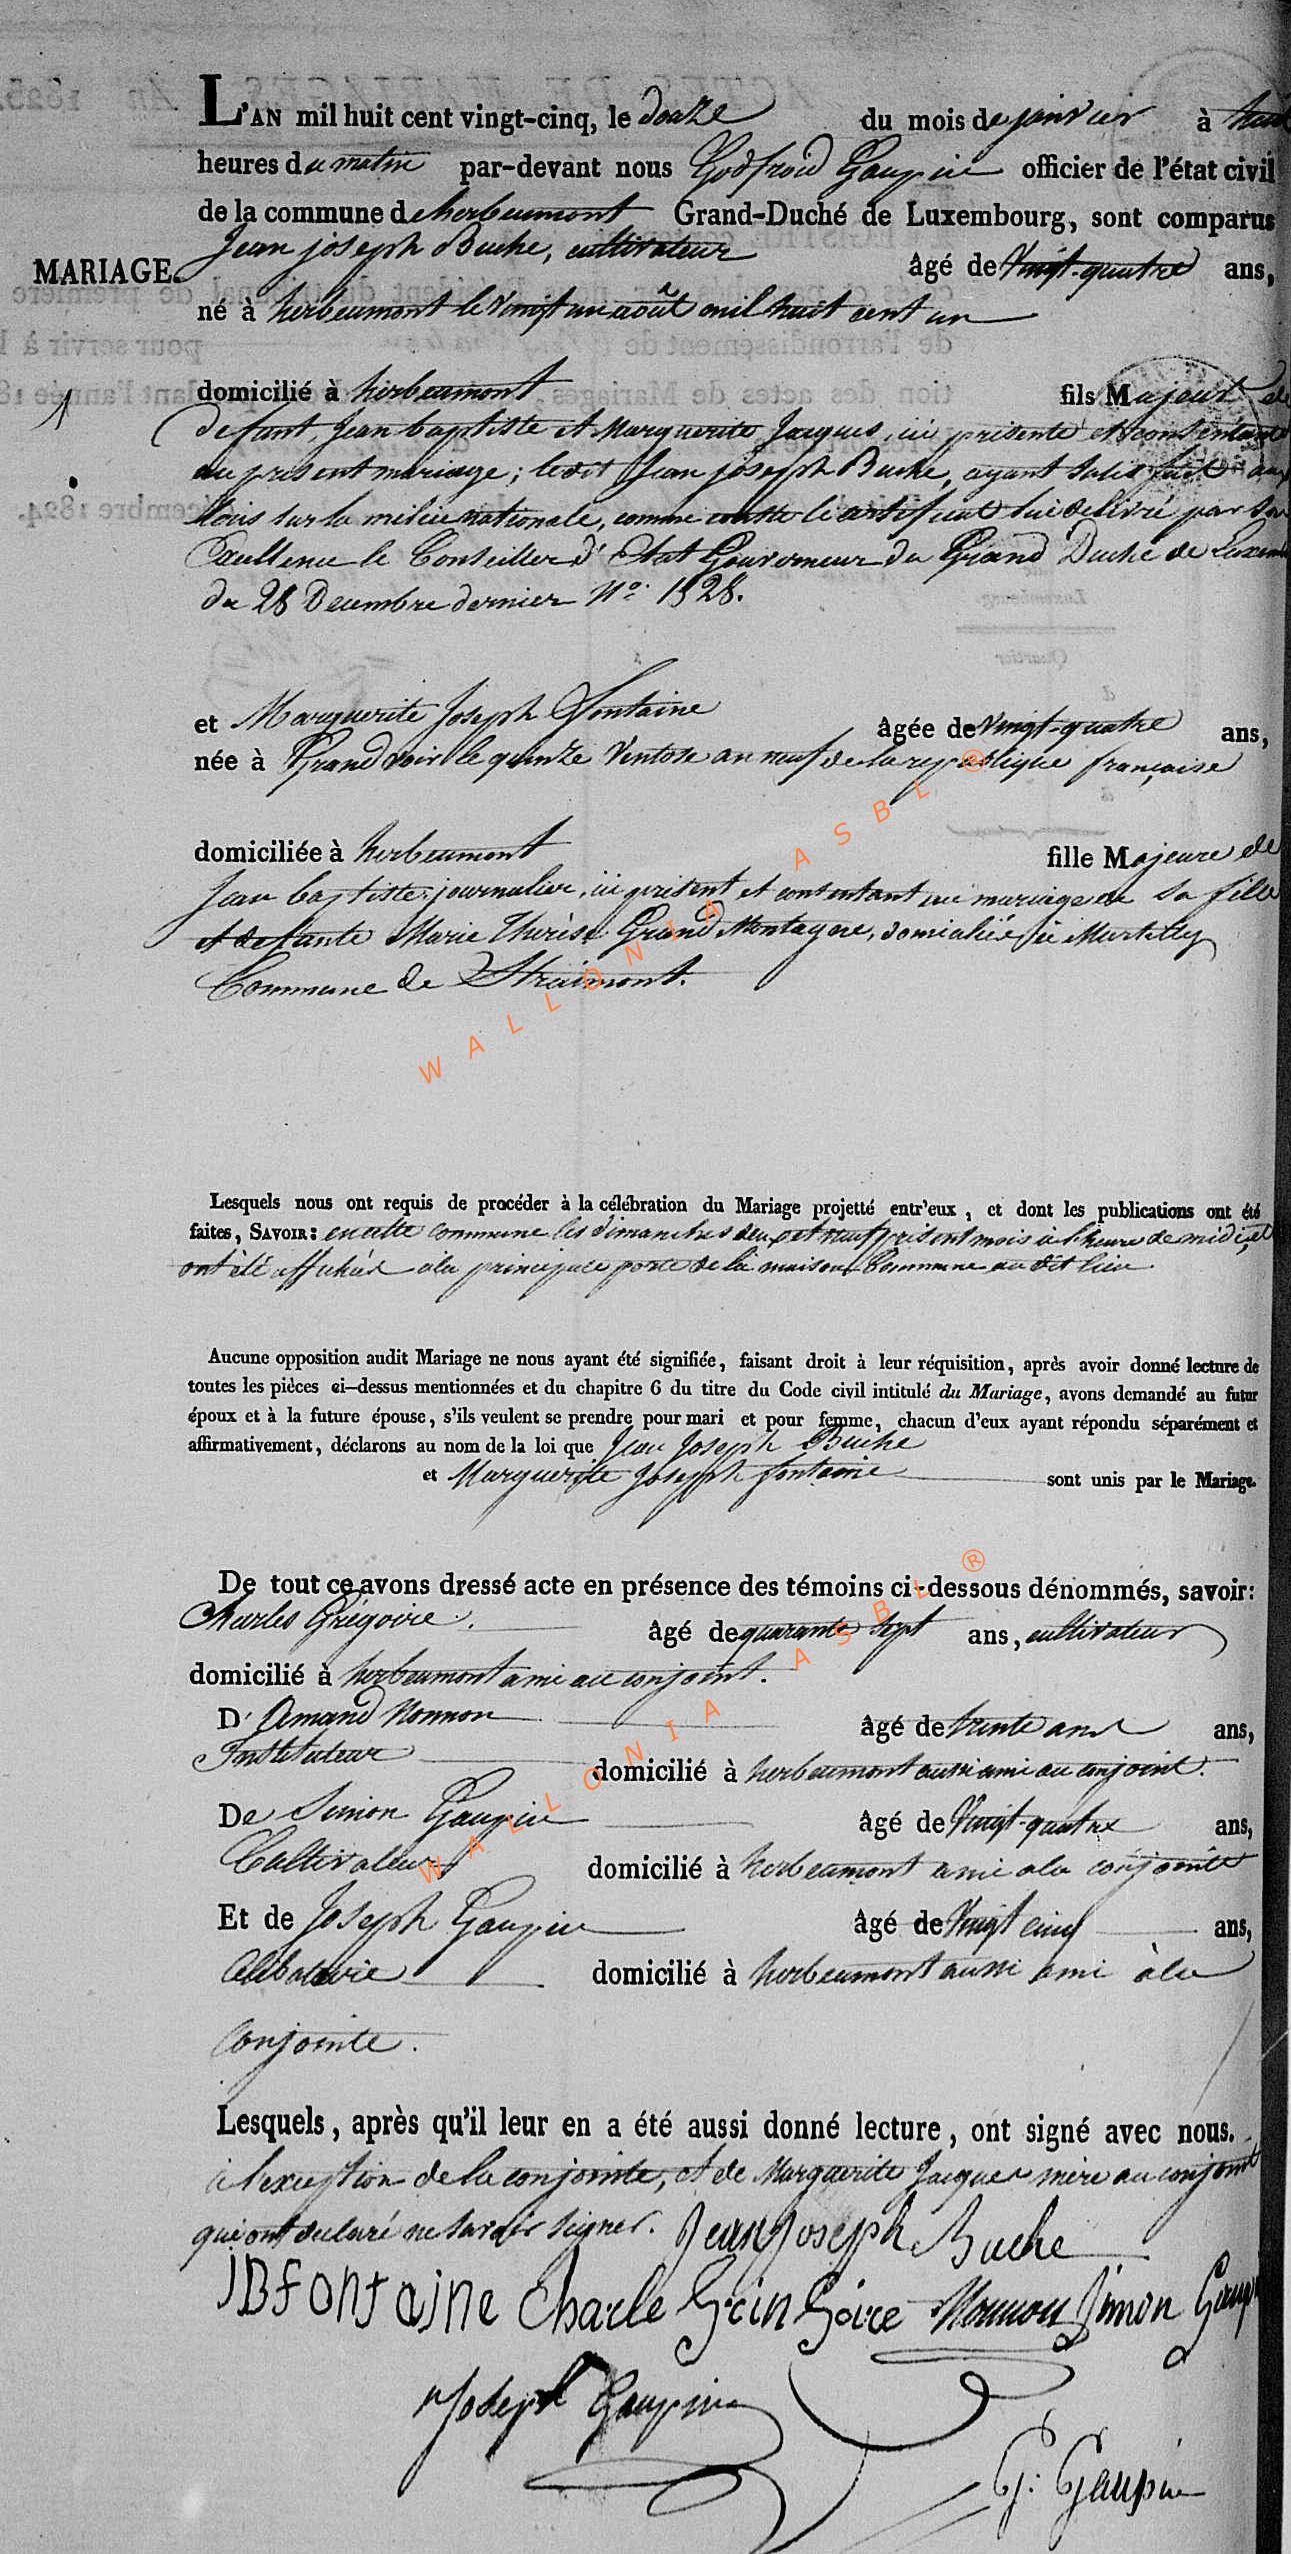 L'AN mil huit cent vingt-cinq, le douze du mois de janvier à huit
heures du matin par-devant nous Godfroid Gaupin officier de l'état civil
de la commune d'herbeumont Grand-Duché de Luxembourg, sont comparus
Jean joseph Buche, cultivateur
MARIAGE. âgé de Vingt-quatre ans,
né à herbeumont le vingt un août mil huit cent un
domicilié à herbeumont fils Majeur de
1
defunt, Jean baptiste et Marguerite Jacques, ici présente et consentante
au présent mariage; ledit Jean joseph Buche, ayant satisfait aux
lois sur la milice nationale, comme conste le certificat lui délivré par Son
Excellence le Conseiller d'Etat Gouverneur du Grand Duché de Luxem
du 28 Decembre dernier No. 1528.
et Marguerite Joseph Fontaine âgée de vingt-quatre ans,
née à Grandvoir le quinze Ventose an neuf de la republique française
domiciliée à herbeumont fille Majeure de
Jean baptiste, journalier, ici présent et consentant au mariage de sa fille
et defunte Marie Thérèse Grand Montagne, domiciliée à Martilly
Commune de Straimont.
Lesquels nous ont requis de procéder à la célébration du Mariage projetté entr'eux, et dont les publications ont été
faites, SAVOIR: en cette commune les dimanches deux et neuf présent mois à l'heure de midi, et
ont été affichées à la principale porte de la maison Commune au dit lieu.
Aucune opposition audit Mariage ne nous ayant été signifiée, faisant droit à leur réquisition, après avoir donné lecture de
toutes les pièces ci-dessus mentionnées et du chapitre 6 du titre du Code civil intitulé du Mariage, avons demandé au futur
époux et à la future épouse, s'ils veulent se prendre pour mari et pour femme, chacun d'eux ayant répondu séparément et
affirmativement, déclarons au nom de la loi que Jean Joseph Buche
et Marguerite Joseph fontaine sont unis par le Mariage.
De tout ce avons dressé acte en présence des témoins ci-dessous dénommés, savoir:
Charles Grégoire. âgé de quarante sept ans, cultivateur
domicilié à herbeumont ami au conjoint.
D'Amand Nonnon âgé de trente ans ans,
Instituteur domicilié à herbeumont aussi ami au conjoint.
De Simon Gaupin âgé de Vingt-quatre ans,
Cultivateur domicilié à herbeumont ami à la conjointe
Et de Joseph Gaupin âgé de Vingt cinq ans,
Celibatairie domicilié à herbeumont aussi ami à la
conjointe.
Lesquels, après qu'il leur en a été aussi donné lecture, ont signé avec nous.
à l'exception de la conjointe, et de Marguerite Jacques mère au conjoint
qui ont declaré ne savoir signer. Jean Joseph Buche
JBfontaine Charle Grin Goire Nonnon Simon Gaupin
Joseph Gaupin
G: Gaupin
WALLONIA ASBL ®
WALLONIA ASBL ®